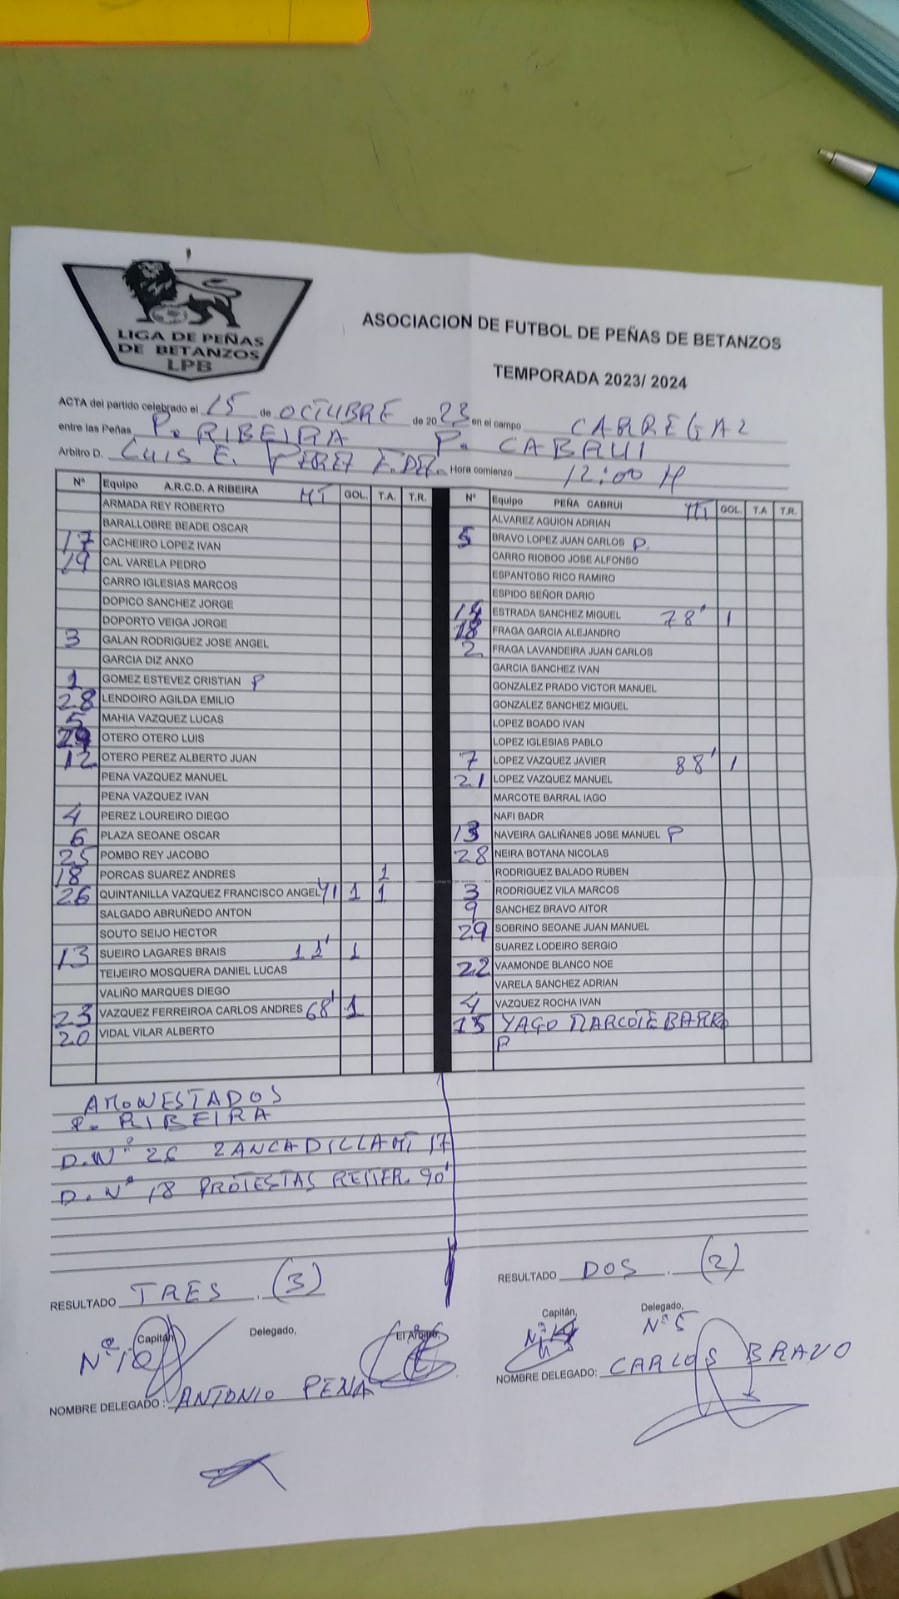 LIGA DE PEÑAS
DE BETANZOS
LPB
ASOCIACION DE FUTBOL DE PEÑAS DE BETANZOS
TEMPORADA 2023/ 2024
ACTA del partido celebrado el 15 de OCTUBRE de 2023 en el campo CARREGAL
entre las Peñas P. RIBEIRA P. CABRUI
Arbitro D. LUIS E. PEREZ Hora comienzo 12:00 H
Nº Equipo A.R.C.D. A RIBEIRA MT GOL. T.A. T.R.
ARMADA REY ROBERTO
BARALLOBRE BEADE OSCAR
17 CACHEIRO LOPEZ IVAN
19 CAL VARELA PEDRO
CARRO IGLESIAS MARCOS
DOPICO SANCHEZ JORGE
DOPORTO VEIGA JORGE
3 GALAN RODRIGUEZ JOSE ANGEL
GARCIA DIZ ANXO
1 GOMEZ ESTEVEZ CRISTIAN P
28 LENDOIRO AGILDA EMILIO
5 MAHIA VAZQUEZ LUCAS
OTERO OTERO LUIS
12 OTERO PEREZ ALBERTO JUAN
PENA VAZQUEZ MANUEL
PENA VAZQUEZ IVAN
4 PEREZ LOUREIRO DIEGO
6 PLAZA SEOANE OSCAR
25 POMBO REY JACOBO
18 PORCAS SUAREZ ANDRES 1
26 QUINTANILLA VAZQUEZ FRANCISCO ANGEL 41 1 1
SALGADO ABRUÑEDO ANTON
SOUTO SEIJO HECTOR
13 SUEIRO LAGARES BRAIS 11' 1
TEIJEIRO MOSQUERA DANIEL LUCAS
VALIÑO MARQUES DIEGO
23 VAZQUEZ FERREIROA CARLOS ANDRES 68' 1
20 VIDAL VILAR ALBERTO
Nº Equipo PEÑA CABRUI MT GOL. T.A T.R.
ALVAREZ AGUION ADRIAN
5 BRAVO LOPEZ JUAN CARLOS P.
CARRO RIOBOO JOSE ALFONSO
ESPANTOSO RICO RAMIRO
ESPIDO SEÑOR DARIO
ESTRADA SANCHEZ MIGUEL 78' 1
18 FRAGA GARCIA ALEJANDRO
2 FRAGA LAVANDEIRA JUAN CARLOS
GARCIA SANCHEZ IVAN
GONZALEZ PRADO VICTOR MANUEL
GONZALEZ SANCHEZ MIGUEL
LOPEZ BOADO IVAN
LOPEZ IGLESIAS PABLO
7 LOPEZ VAZQUEZ JAVIER 88' 1
21 LOPEZ VAZQUEZ MANUEL
MARCOTE BARRAL IAGO
NAFI BADR
13 NAVEIRA GALIÑANES JOSE MANUEL P
28 NEIRA BOTANA NICOLAS
RODRIGUEZ BALADO RUBEN
3 RODRIGUEZ VILA MARCOS
9 SANCHEZ BRAVO AITOR
29 SOBRINO SEOANE JUAN MANUEL
SUAREZ LODEIRO SERGIO
22 VAAMONDE BLANCO NOE
VARELA SANCHEZ ADRIAN
4 VAZQUEZ ROCHA IVAN
YAGO MARCOTE BARR
P
AMONESTADOS
P. RIBEIRA
D. Nº 26 ZANCADILLA MT 17
D. Nº 18 PROTESTAS REITER. 90'
RESULTADO TRES (3)
RESULTADO DOS (2)
Capitán, Delegado,
Nº 10
NOMBRE DELEGADO: ANTONIO PENA
Capitán, Delegado,
Nº 5
NOMBRE DELEGADO: CARLOS BRAVO